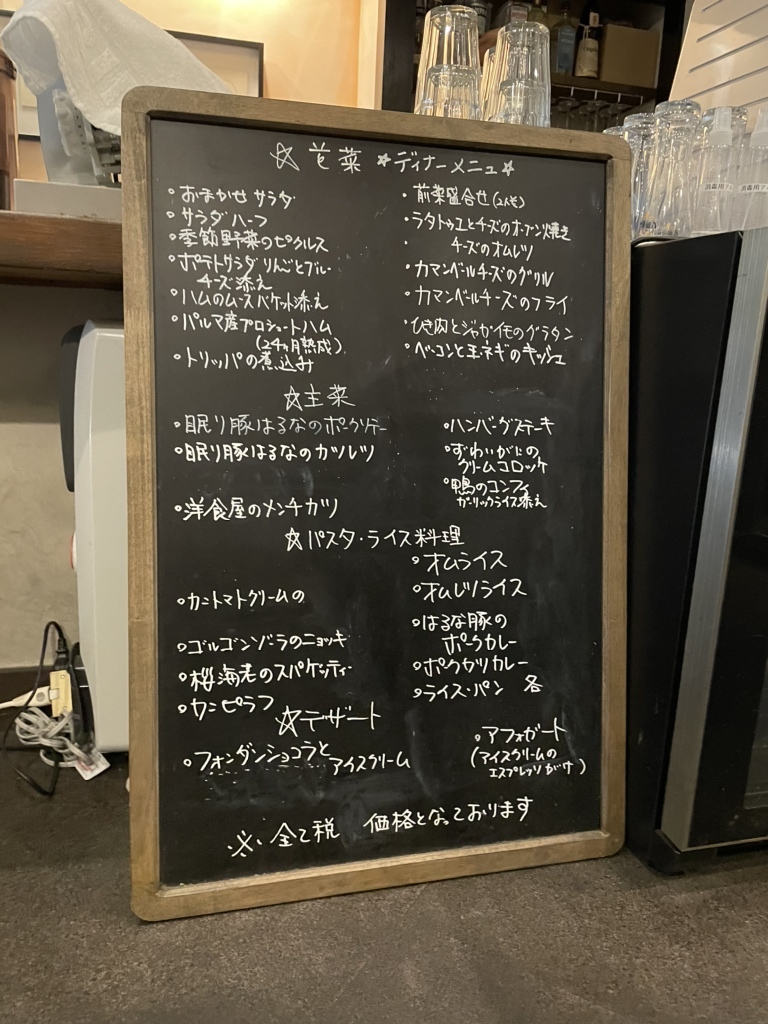 ☆前菜 ☆ディナーメニュー☆
・おまかせサラダ
・サラダハーフ
・季節野菜のピクルス
・ポテトサラダ りんごとブルー
チーズ添え
・ハムのムースバケット添え
・パルマ産プロシュートハム
(24ヶ月熟成)
・トリッパの煮込み
・前菜盛合せ(2人〜)
・ラタトゥユとチーズのオーブン焼き
・チーズのオムレツ
・カマンベールチーズのグリル
・カマンベールチーズのフライ
・ひき肉とジャガイモのグラタン
・ベーコンと玉ネギのキッシュ
☆主菜
・眠り豚はるなのポークソテー
・眠り豚はるなのカツレツ
・洋食屋のメンチカツ
・ハンバーグステーキ
・ずわいがにの
クリームコロッケ
・鴨のコンフィ
ガーリックライス添え
☆パスタ・ライス料理
・カニトマトクリームの
・ゴルゴンゾーラのニョッキ
・桜海老のスパゲッティー
・カニピラフ
・オムライス
・オムレツライス
・はるな豚の
ポークカレー
・ポークカツカレー
・ライス・パン 各
☆デザート
・フォンダンショコラと
アイスクリーム
・アフォガート
(アイスクリームの
エスプレッソがけ)
※全て税 価格となっております
消毒用ア
消毒用ア